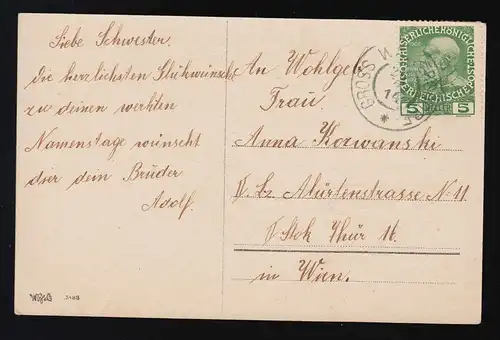 Liebe Schwester.
die herzlichsten Glükwünsche
zu deinen werthen
Namenstage wünscht
dier dein Brüder
Adolf.
An Wohlgeb
Frau
Anna Kozwanski
V. Bz Alürtenstrasse N 11
II Stok Thür 16
in Wien.
GROSS
KAISERLICHE KÖNIGLICHE
ÖSTERREICHISCHE
5 5
2488